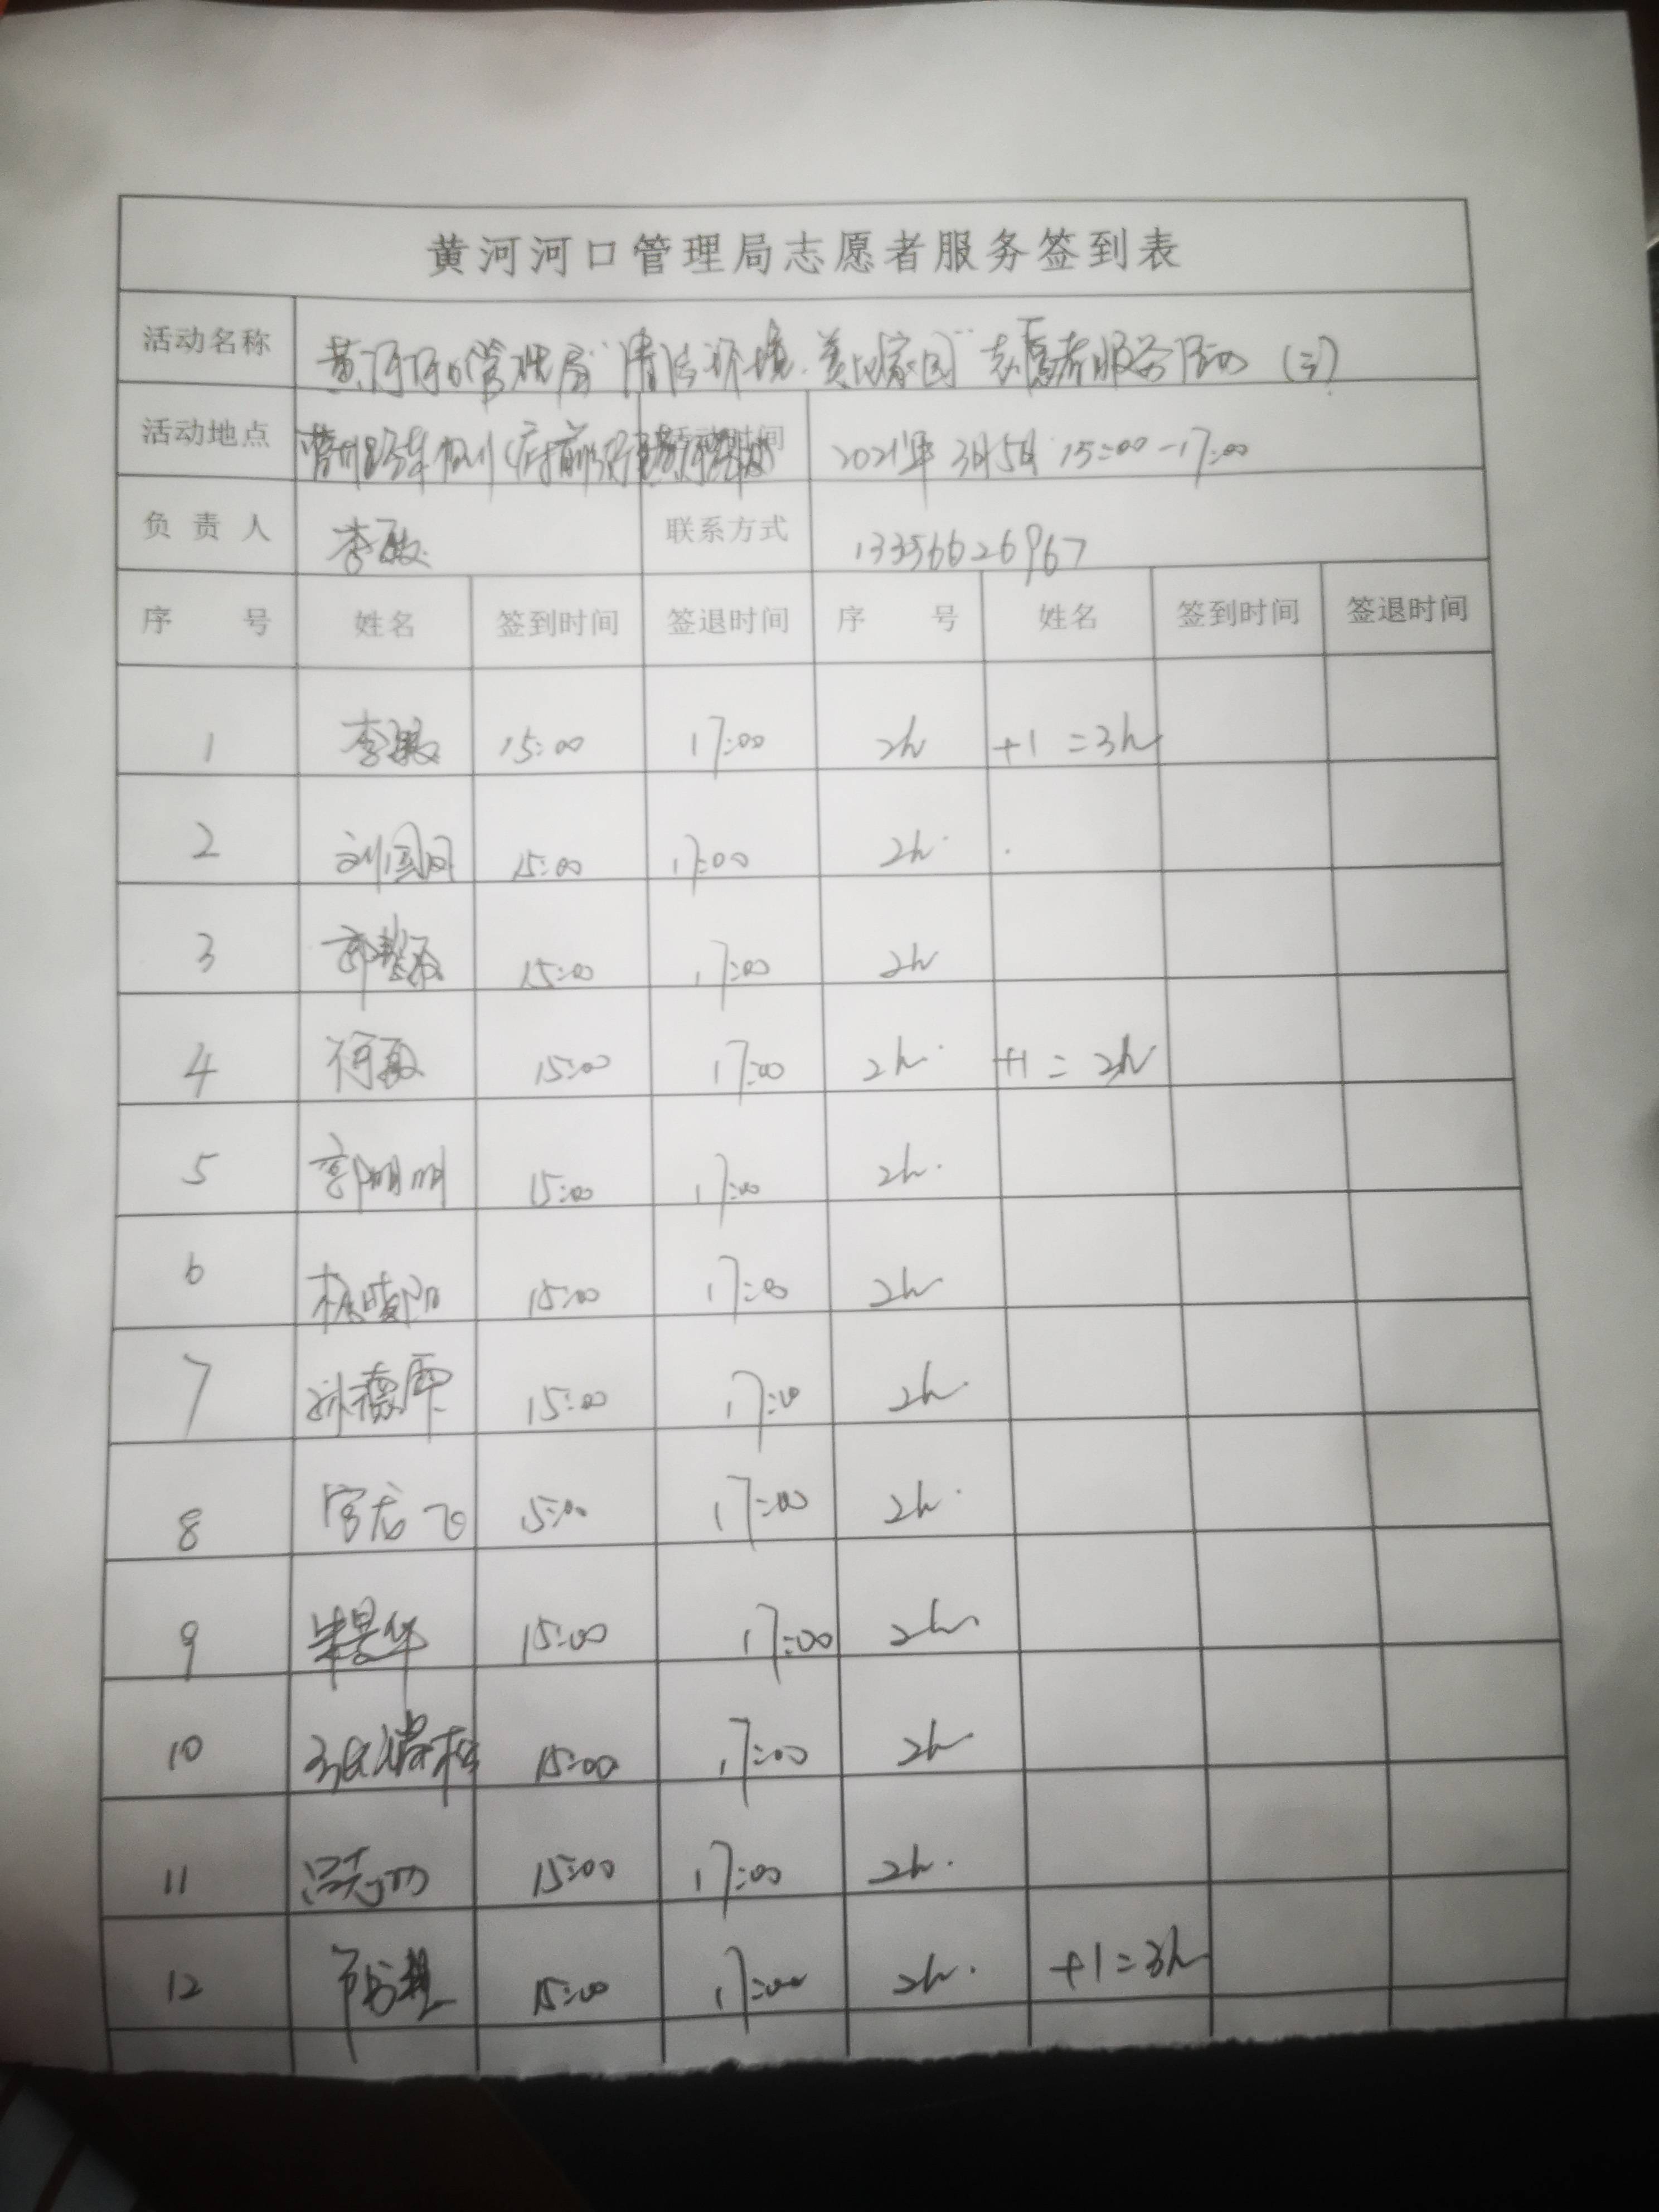 黄河河口管理局志愿者服务签到表
活动名称 黄河河口管理局“清洁环境·美化家园”志愿者服务活动（三）
活动地点 2021年3月5日 15:00-17:00
负责人 李敏 联系方式 13356626967
序号 姓名 签到时间 签退时间 序号 姓名 签到时间 签退时间
1 李敏 15:00 17:00 2h +1=3h
2 15:00 17:00 2h
3 15:00 17:00 2h
4 何敏 15:00 17:00 2h +1=2h
5 郭明明 15:00 17:00 2h
6 15:00 17:00 2h
7 15:00 17:00 2h
8 宫龙飞 15:00 17:00 2h
9 朱景华 15:00 17:00 2h
10 15:00 17:00 2h
11 15:00 17:00 2h
12 15:00 17:00 2h +1=3h